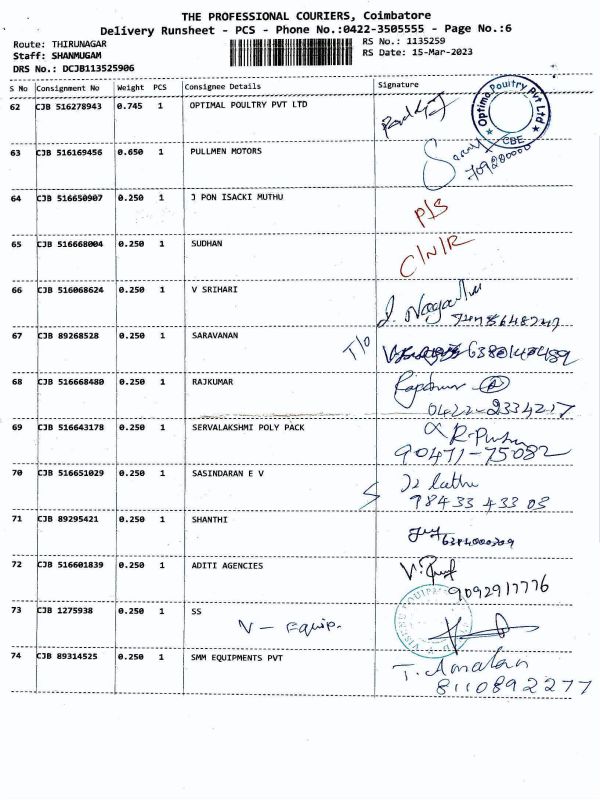 THE PROFESSIONAL COURIERS, Coimbatore
Delivery Runsheet - PCS - Phone No.:0422-3505555 - Page No.:6
Route: THIRUNAGAR RS No.: 1135259
Staff: SHANMUGAM RS Date: 15-Mar-2023
DRS No.: DCJB113525906
S No Consignment No Weight PCS Consignee Details Signature
62 CJB 516278943 0.745 1 OPTIMAL POULTRY PVT LTD
Optima Poultry Pvt Ltd CBE
63 CJB 516169456 0.650 1 PULLMEN MOTORS
64 CJB 516650907 0.250 1 J PON ISACKI MUTHU P/S
65 CJB 516668004 0.250 1 SUDHAN C/N/R
66 CJB 516068624 0.250 1 V SRIHARI
67 CJB 89268528 0.250 1 SARAVANAN T/O
68 CJB 516668480 0.250 1 RAJKUMAR
0422-2334217
69 CJB 516643178 0.250 1 SERVALAKSHMI POLY PACK
90471-75082
70 CJB 516651029 0.250 1 SASINDARAN E V
98433 433 03
71 CJB 89295421 0.250 1 SHANTHI
6384000309
72 CJB 516601839 0.250 1 ADITI AGENCIES
9092917776
73 CJB 1275938 0.250 1 SS
V - Equip.
74 CJB 89314525 0.250 1 SMM EQUIPMENTS PVT
8110892277